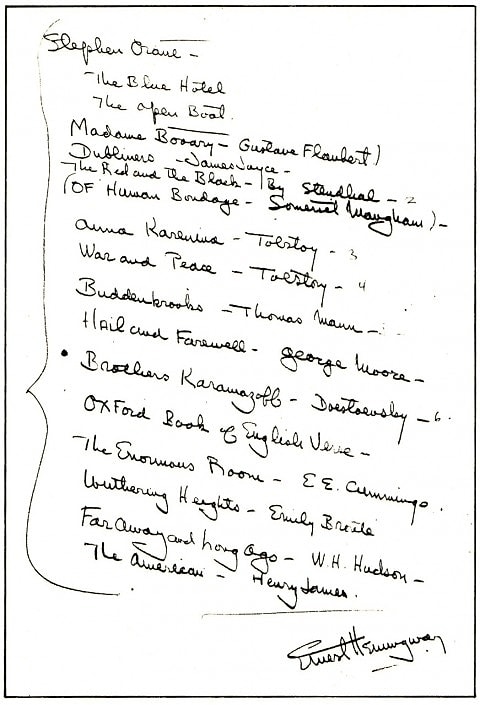 Stephen Crane -
The Blue Hotel
The Open Boat.
Madame Bovary - Gustave Flaubert)
Dubliners - James Joyce -
The Red and the Black - By Stendhal - 2
(OF Human Bondage - Somerset Maugham) -
Anna Karenina - Tolstoy - 3
War and Peace - Tolstoy - 4
Buddenbrooks - Thomas Mann -
Hail and Farewell - George Moore -
Brothers Karamazoff - Doestoevsky - 6.
OXFord Book of English Verse -
The Enormous Room - E E. Cummings.
Wuthering Heights - Emily Bronte
Far Away and Long Ago - W. H. Hudson -
The American - Henry James.
Ernest Hemingway